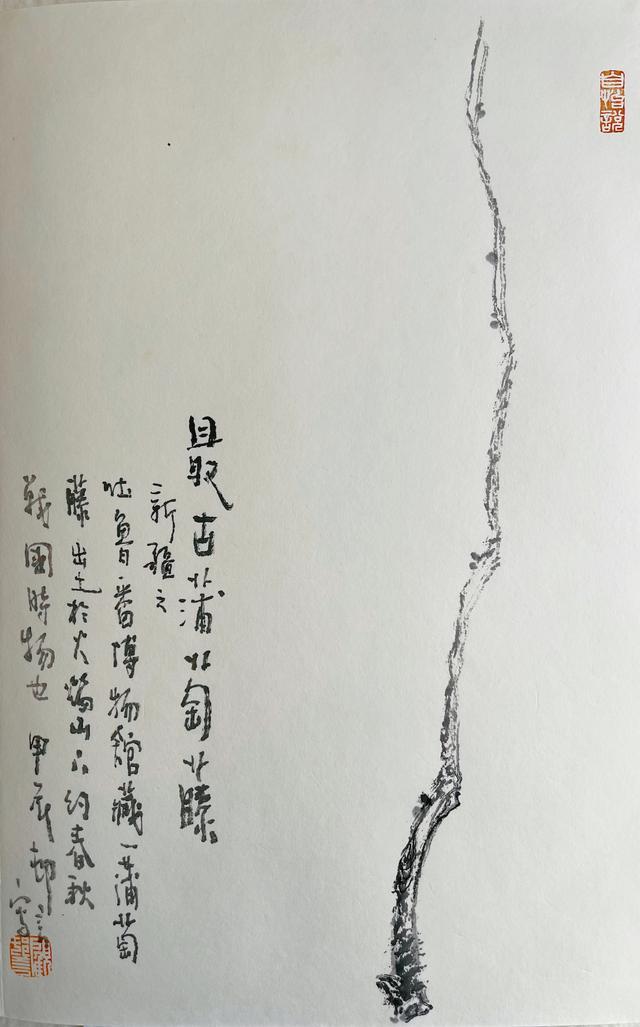 最古蒲萄藤
新疆之
吐魯番博物館藏一蒲萄
藤出土於火焰山下約春秋
戰國時物也 甲辰